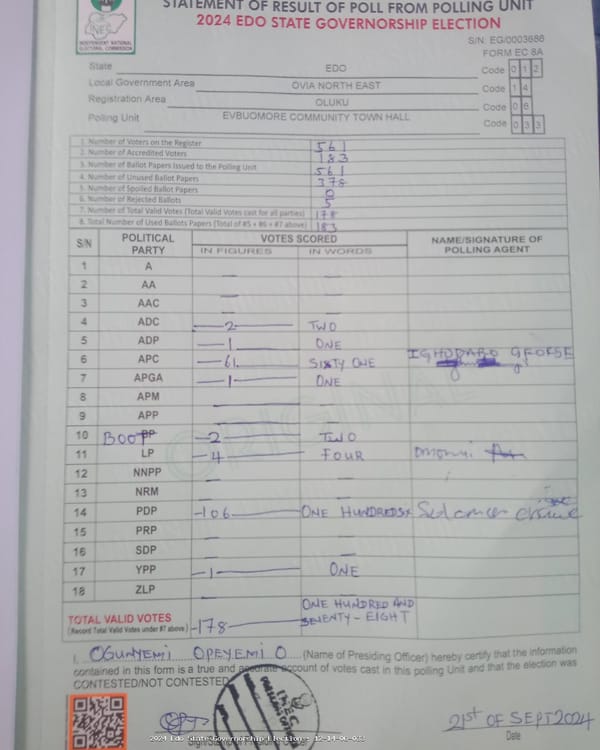 STATEMENT OF RESULT OF POLL FROM POLLING UNIT
2024 EDO STATE GOVERNORSHIP ELECTION
INEC
INDEPENDENT NATIONAL ELECTORAL COMMISSION
S/N: EG/0003686
FORM EC 8A
State EDO Code 0 1 2
Local Government Area OVIA NORTH EAST Code 1 4
Registration Area OLUKU Code 0 6
Polling Unit EVBUOMORE COMMUNITY TOWN HALL Code 0 3 3
1. Number of Voters on the Register 561
2. Number of Accredited Voters 183
3. Number of Ballot Papers Issued to the Polling Unit 561
4. Number of Unused Ballot Papers 378
5. Number of Spoiled Ballot Papers 0
6. Number of Rejected Ballots 5
7. Number of Total Valid Votes (Total Valid Votes cast for all parties) 178
8. Total Number of Used Ballots Papers (Total of #5 + #6 + #7 above) 183
S/N POLITICAL PARTY VOTES SCORED NAME/SIGNATURE OF POLLING AGENT
IN FIGURES IN WORDS
1 A — —
2 AA — —
3 AAC — —
4 ADC —2— TWO
5 ADP —1— ONE
6 APC —61— SIXTY ONE IGHODARO GEORGE
7 APGA —1— ONE
8 APM — —
9 APP — —
10 BOOT —2— TWO
11 LP —4— FOUR
12 NNPP — —
13 NRM — —
14 PDP —106— ONE HUNDRED
15 PRP — —
16 SDP — —
17 YPP —1— ONE
18 ZLP —
TOTAL VALID VOTES
(Record Total Valid Votes under #7 above) —178— ONE HUNDRED AND SEVENTY-EIGHT
I, OGUNYEMI OPEYEMI O (Name of Presiding Officer) hereby certify that the information
contained in this form is a true and accurate account of votes cast in this polling Unit and that the election was
CONTESTED/NOT CONTESTED
INEC
21ST OF SEPT 2024
Date
2024 Edo State Governorship Election - 12-14-06-033